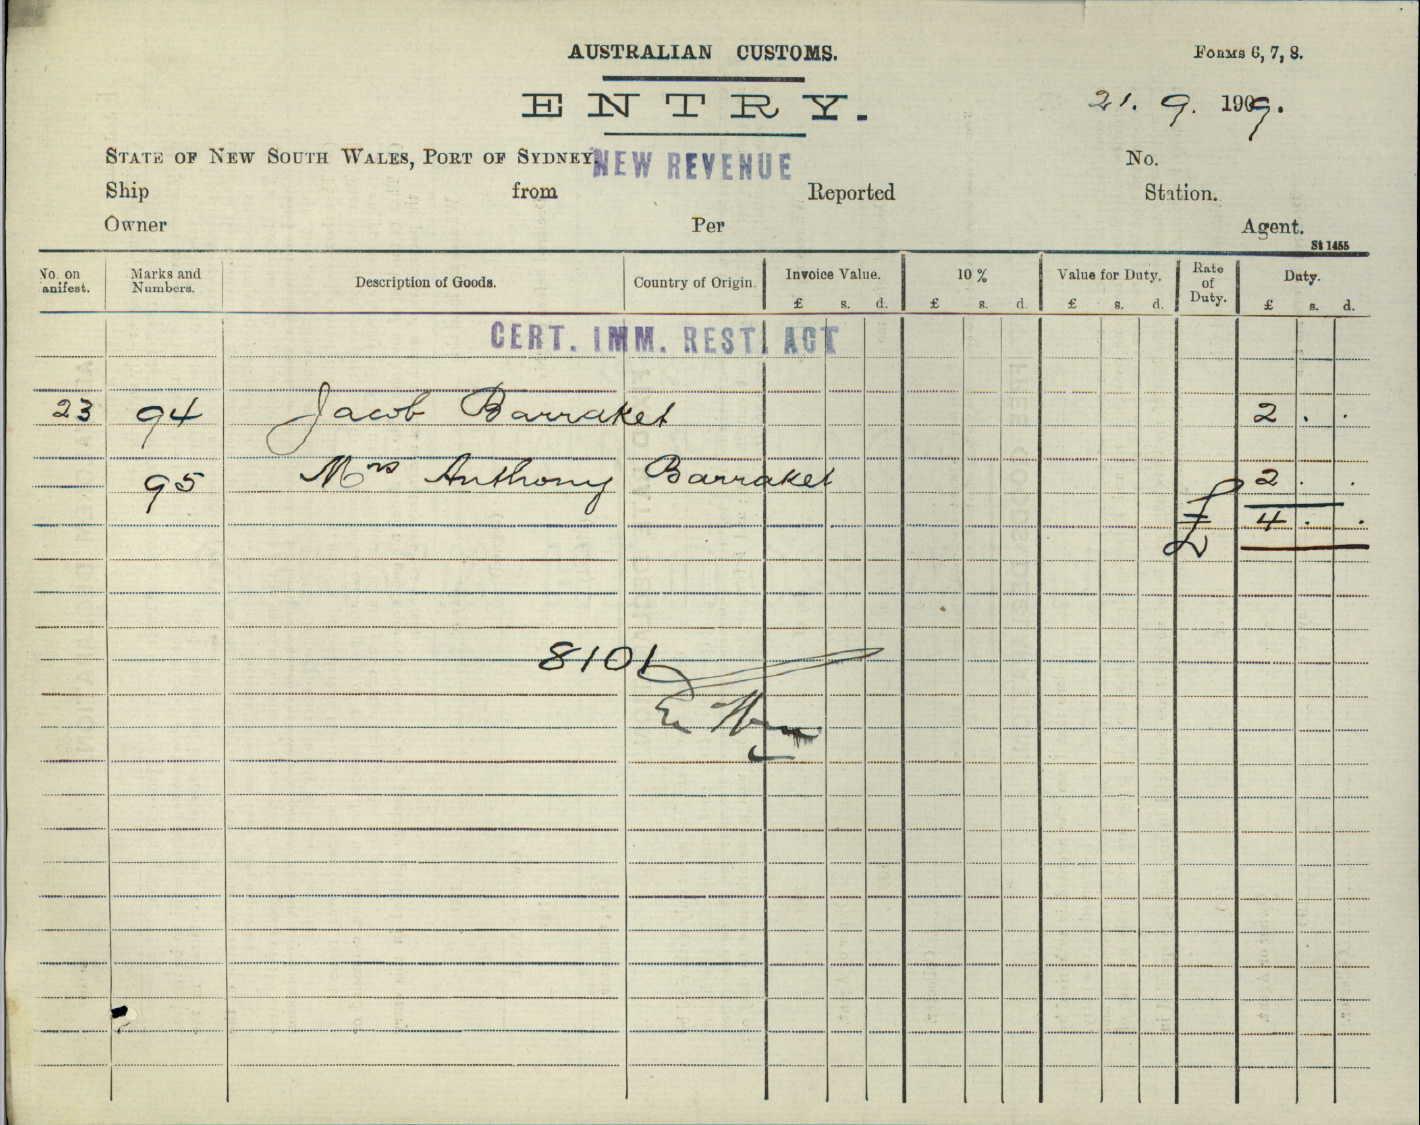 AUSTRALIAN CUSTOMS. FORMS 6, 7, 8.
ENTRY. 21. 9. 1909.
STATE OF NEW SOUTH WALES, PORT OF SYDNEY, NEW REVENUE No.
Ship from Reported Station.
Owner Per Agent.
St 1455
No. on anifest. Marks and Numbers. Description of Goods. Country of Origin. Invoice Value. 10 % Value for Duty. Rate of Duty. Duty.
£ s. d. £ s. d. £ s. d. £ s. d.
CERT. IMM. REST. ACT
23 94 Jacob Barraket 2 . .
95 Mrs Anthony Barraket 2 . .
£ 4 . .
8101